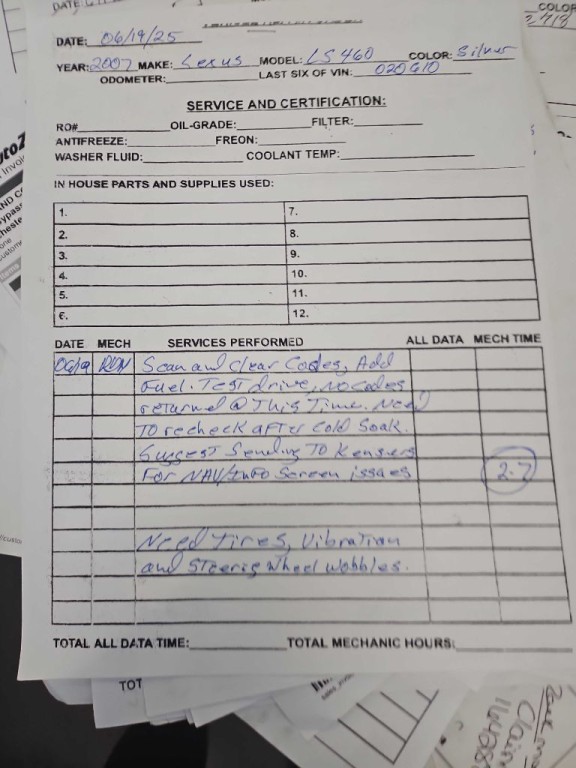 DATE:
COLOR
DATE: 06/19/25
YEAR: 2007 MAKE: Lexus MODEL: LS 460 COLOR: Silver
ODOMETER: LAST SIX OF VIN: 020610
SERVICE AND CERTIFICATION:
RO# OIL-GRADE: FILTER:
ANTIFREEZE: FREON:
WASHER FLUID: COOLANT TEMP:
IN HOUSE PARTS AND SUPPLIES USED:
1. 7.
2. 8.
3. 9.
4. 10.
5. 11.
6. 12.
DATE MECH SERVICES PERFORMED ALL DATA MECH TIME
06/19 RDN Scan and clear Codes, Add
Fuel. Test drive, no codes
returned @ This Time. Need
TO recheck after cold soak.
Suggest Sending TO Kensuers
For NAV/INFO Screen issues 2.7
Need Tires, Vibration
and Steerig wheel wobbles.
TOTAL ALL DATA TIME: TOTAL MECHANIC HOURS:
TOT
Claim